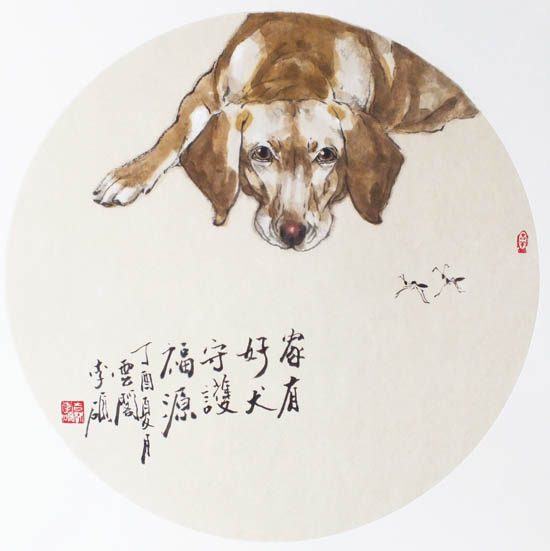 家有
好犬
守護
福源
丁酉夏月
雲閣
李